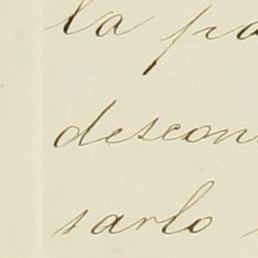 la pa
descon
sarlo